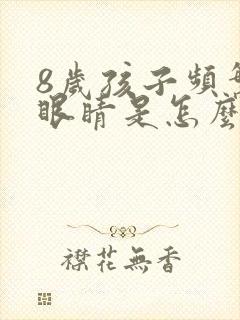 8歲孩子頻
眼睛是怎麼
襟花無香